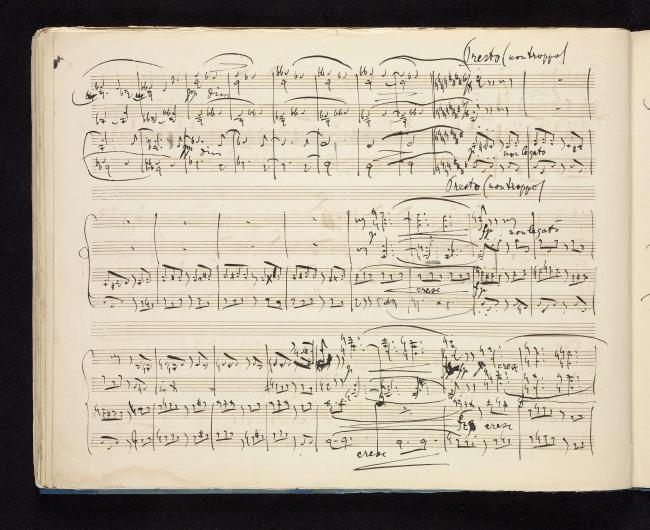 Presto (non troppo)
pp dim
pp dim
non legato
Presto (non troppo)
non legato
cresc
cresc
cresc
cresc